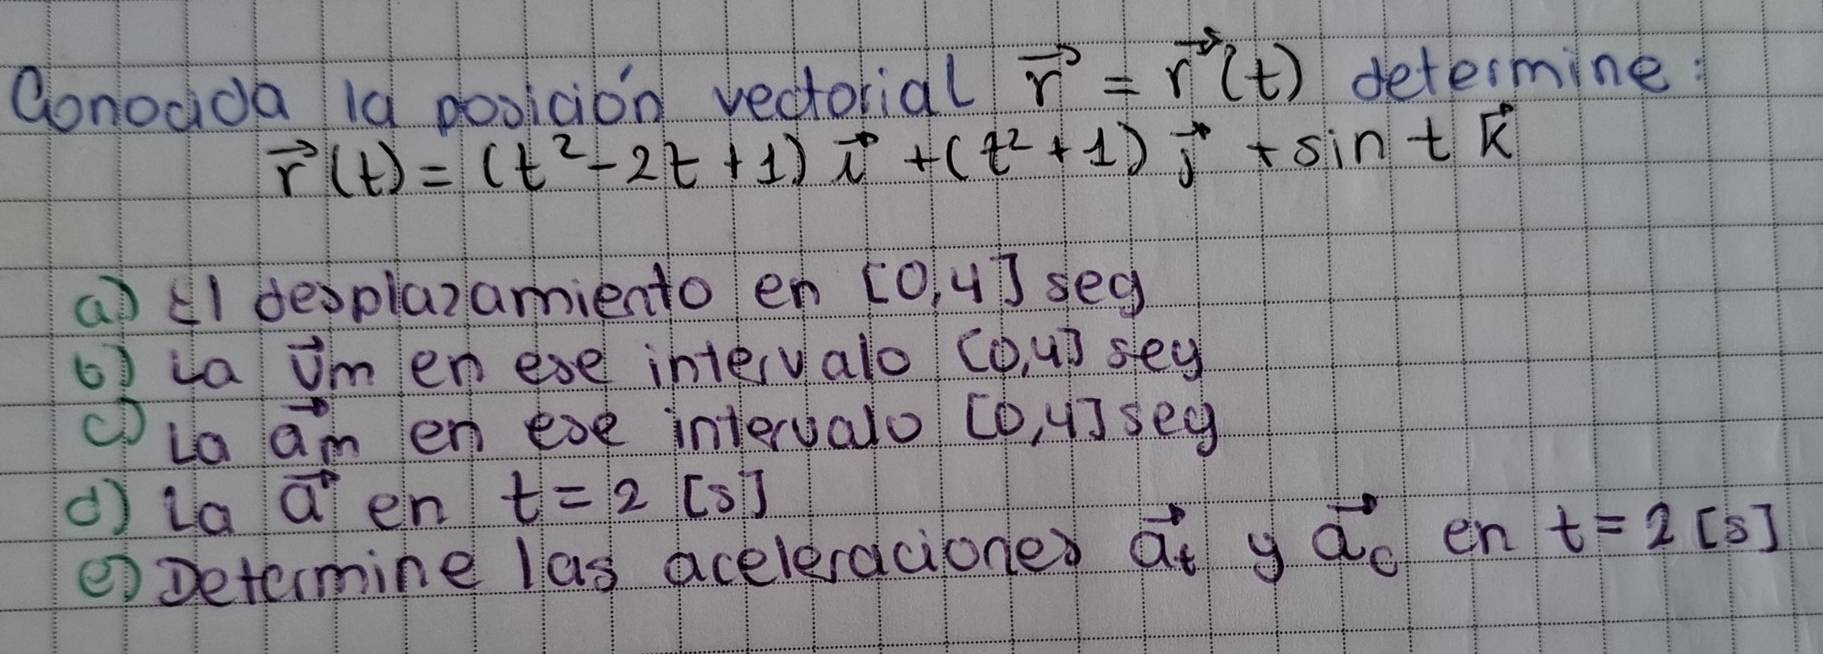 Conocida la posición vectorial r⃗ = r⃗(t) determine:
r⃗(t) = (t² - 2t + 1) i⃗ + (t² + 1) j⃗ + sin t k⃗
a) El desplazamiento en [0,4] seg
b) La v⃗m en ese intervalo [0,4] seg
c) La a⃗m en ese intervalo [0,4] seg
d) La a⃗ en t = 2 [s]
e) Determine las aceleraciones a⃗t y a⃗c en t = 2 [s]